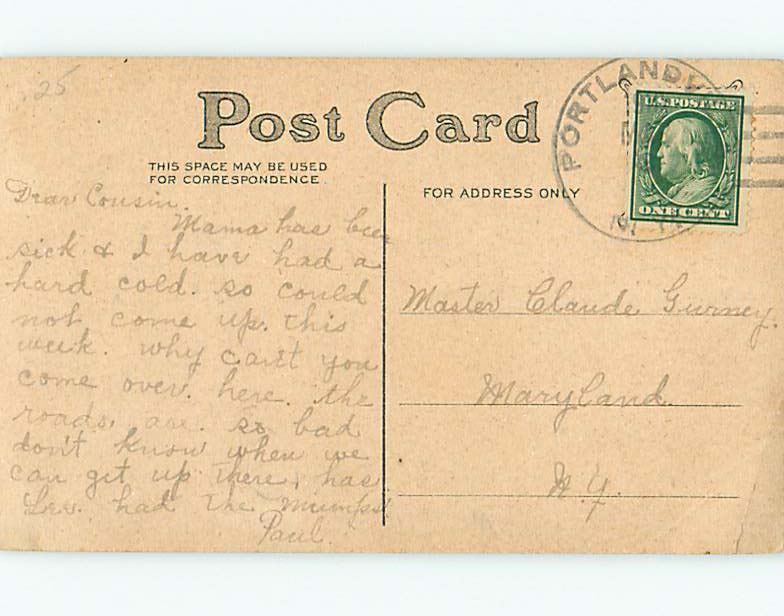 25
Post Card
THIS SPACE MAY BE USED
FOR CORRESPONDENCE.
FOR ADDRESS ONLY
PORTLAND
N.Y.
U.S. POSTAGE
ONE CENT
Dear Cousin.
Mama has been
sick & I have had a
hard cold. so could
not come up. this
week. why can't you
come over. here. the
roads. are. so bad
don't know when we
can get up there. has
Lee. had the mumps
Paul.
Master Claude Gurney.
Maryland.
N.Y.